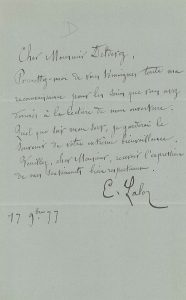 Cher Monsieur Deldevez,
Permettez-moi de vous témoigner toute ma
reconnaissance pour les soins que vous avez
donnés à la lecture de mon ouverture.
Quel que soit mon sort, je garderai le
souvenir de votre extrême bienveillance.
Veuillez, cher Monsieur, recevoir l'expression
de mes sentiments bien respectueux.
E. Lalo
17 9bre 77